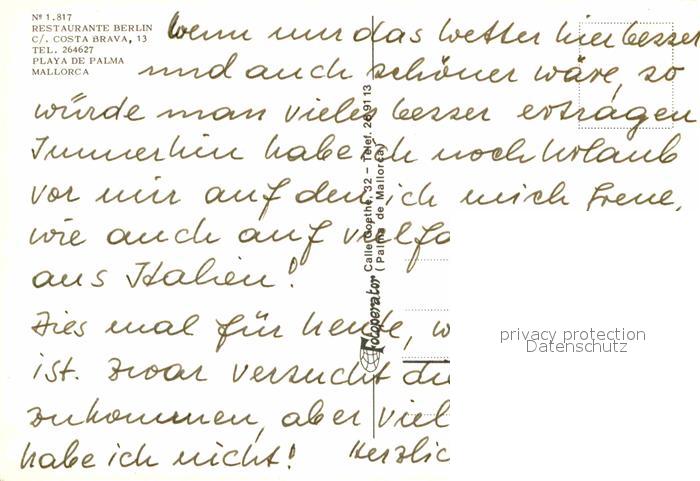 Nº 1.817
RESTAURANTE BERLIN
C/. COSTA BRAVA, 13
TEL. 264627
PLAYA DE PALMA
MALLORCA
Wenn nur das Wetter hier besser
und auch schöner wäre, so
würde man vieles besser ertragen
Immerhin habe ich noch Urlaub
vor mir auf den ich mich freue,
wie auch auf vielfa
aus Italien!
Dies mal für heute, w
ist. Zwar versucht du
zukommen, aber viel
habe ich nicht! Herzlic
Fotoperator Calle Goethe, 32 – Telef. 28 91 13
(Palma de Mallorca)
privacy protection
Datenschutz